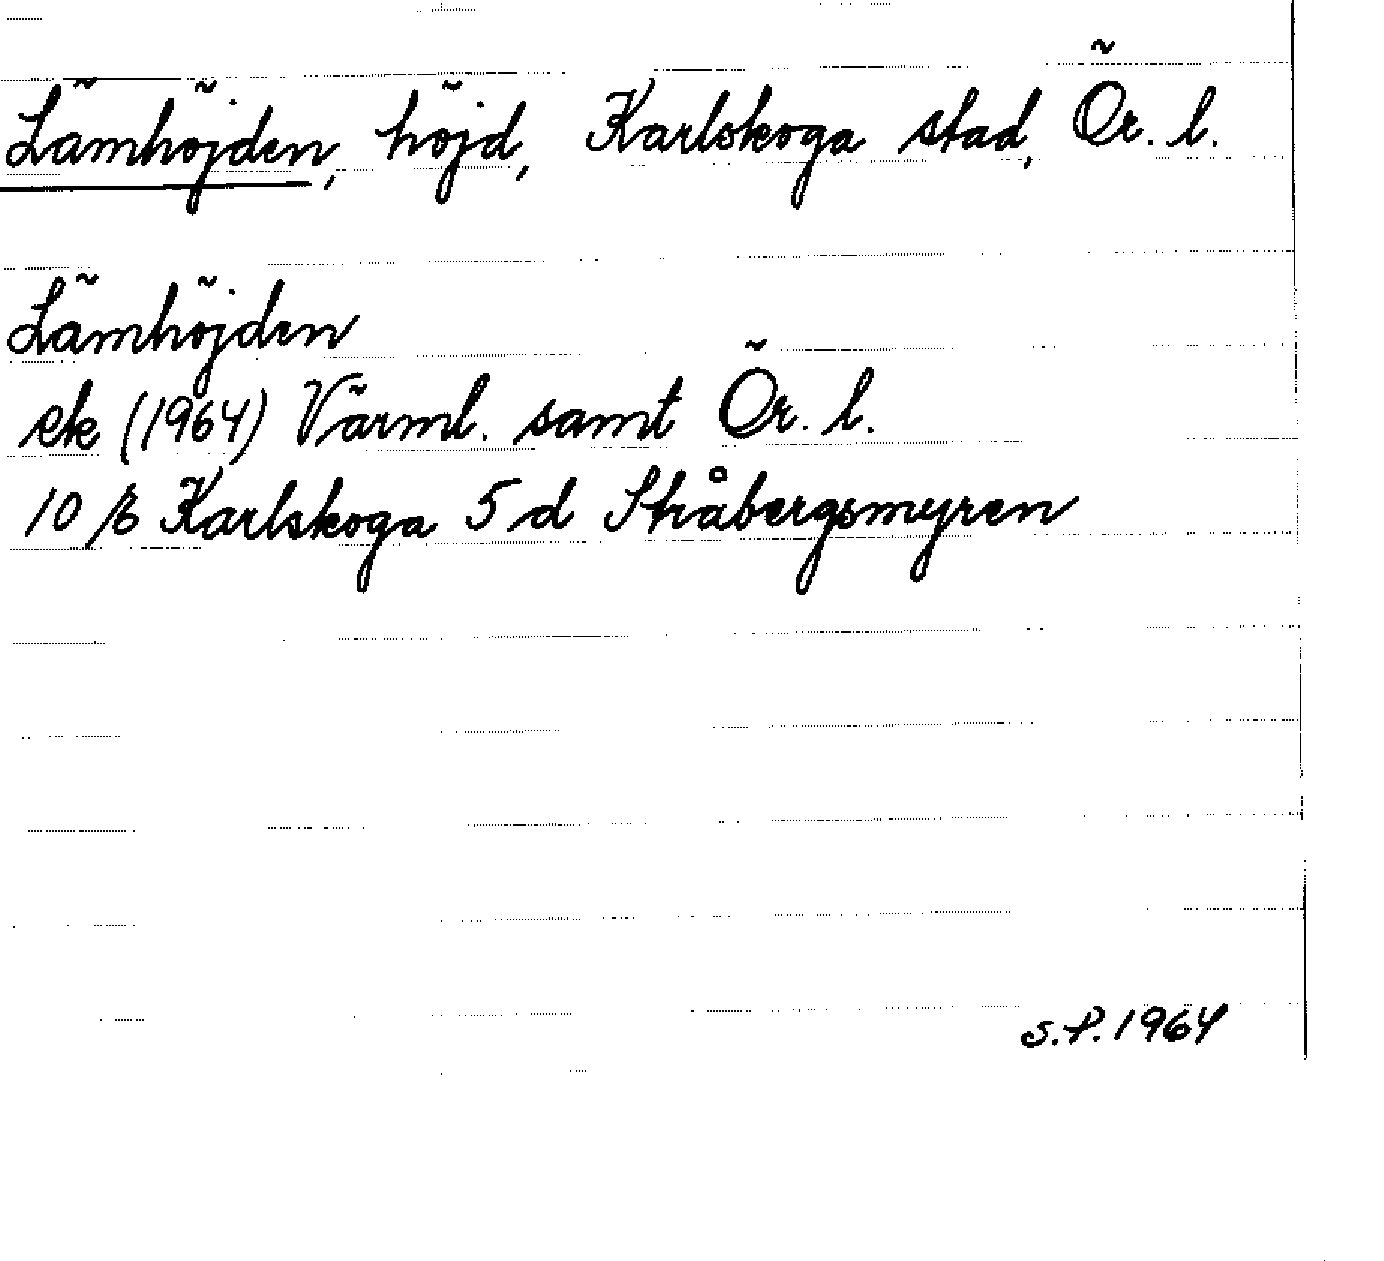 Lämhöjden, höjd, Karlskoga stad, Ör. l.
Lämhöjden
ek (1964) Värml. samt Ör. l.
10 E Karlskoga 5 d Stråbergsmyren
S.P. 1964